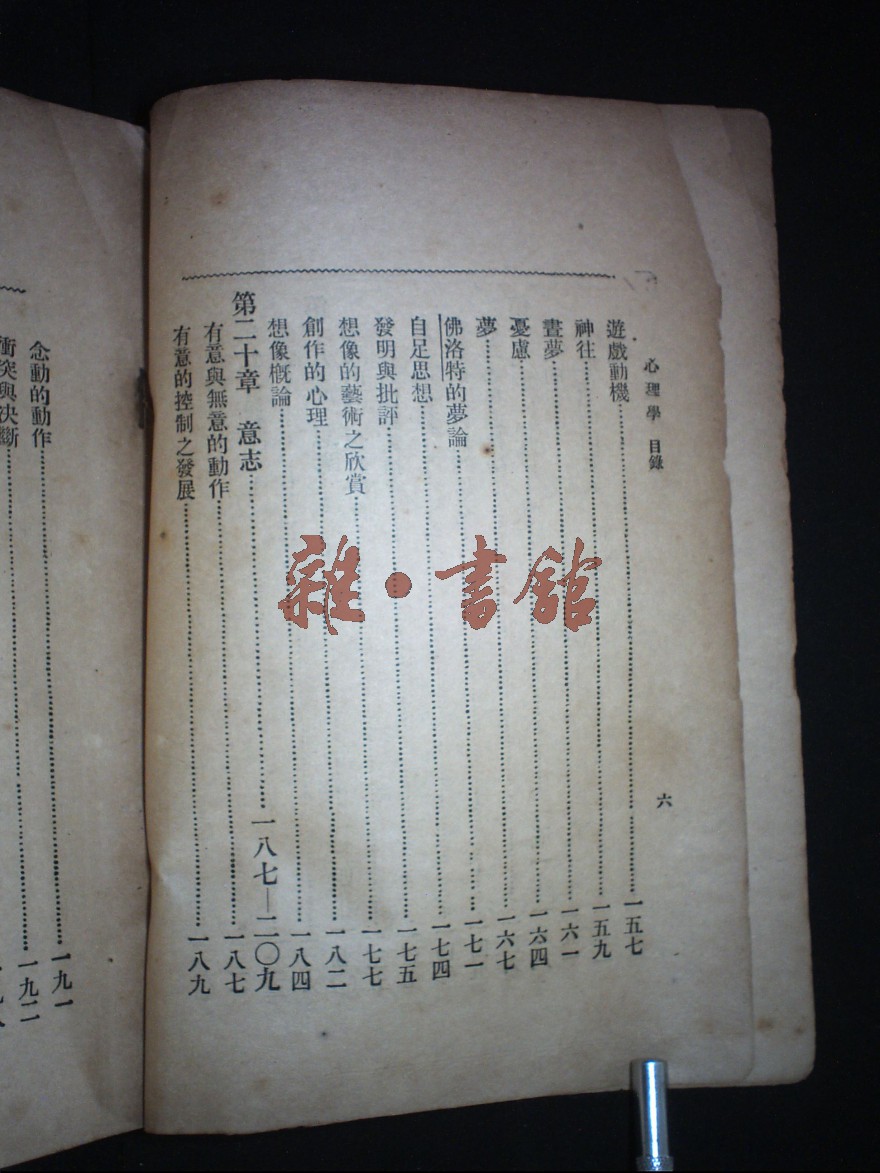 心理學 目錄 六
遊戲動機……一五七
神往……一五九
晝夢……一六一
憂慮……一六四
夢……一六七
佛洛特的夢論……一七一
自足思想……一七四
發明與批評……一七五
想像的藝術之欣賞……一七七
創作的心理……一八二
想像概論……一八四
第二十章 意志……一八七—二〇九
有意與無意的動作……一八七
有意的控制之發展……一八九
念動的動作……一九一
衝突與決斷……一九二
雜·書館